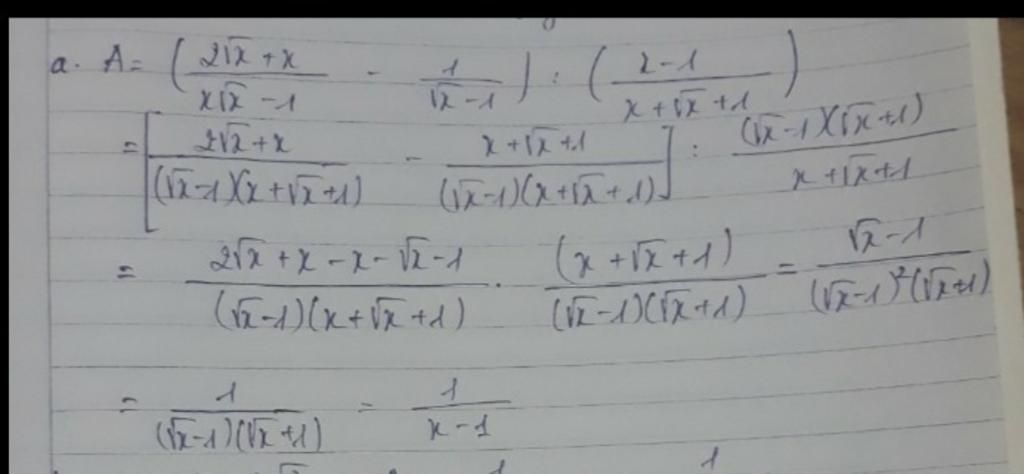 a. A = ( (2√x + x)/(x√x - 1) - 1/(√x - 1) ) : ( (x - 1)/(x + √x + 1) )
= [ (2√x + x)/((√x - 1)(x + √x + 1)) - (x + √x + 1)/((√x - 1)(x + √x + 1)) ] : ((√x - 1)(√x + 1))/(x + √x + 1)
= (2√x + x - x - √x - 1)/((√x - 1)(x + √x + 1)) . (x + √x + 1)/((√x - 1)(√x + 1)) = (√x - 1)/((√x - 1)²(√x + 1))
= 1/((√x - 1)(√x + 1)) = 1/(x - 1)